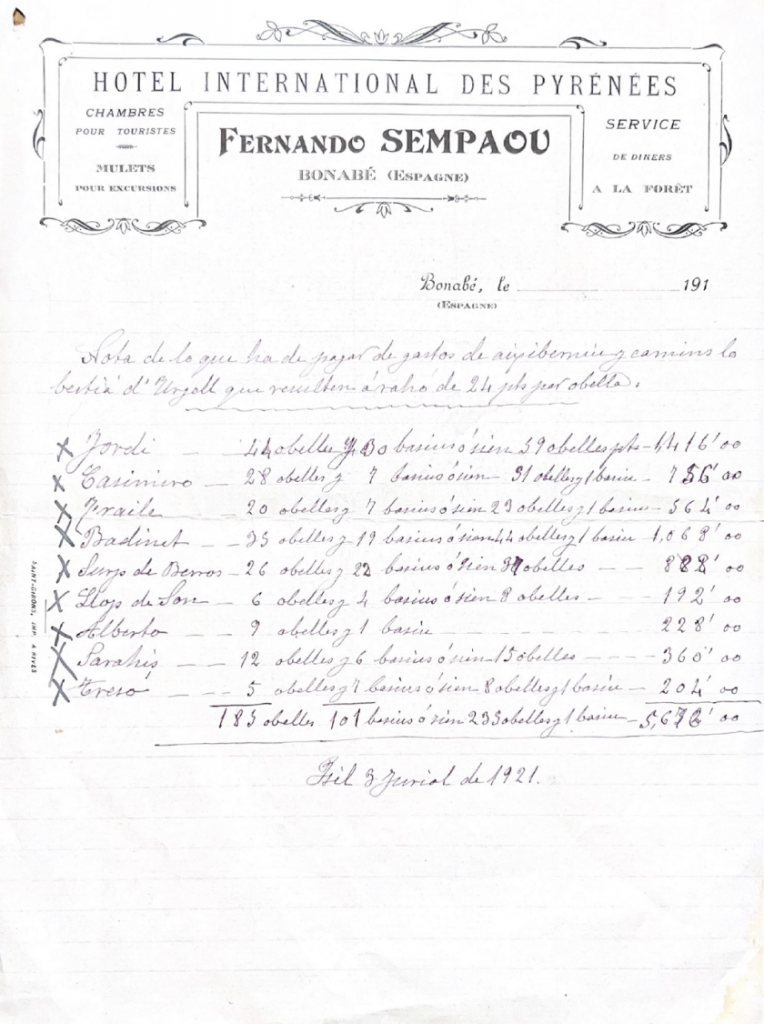 HOTEL INTERNATIONAL DES PYRÉNÉES
CHAMBRES
POUR TOURISTES
MULETS
POUR EXCURSIONS
FERNANDO SEMPAOU
BONABÉ (ESPAGNE)
SERVICE
DE DINERS
A LA FORÊT
Bonabé, le 191
(ESPAGNE)
Nota de lo que ha de pagar de gastos de y camins lo
bestiá d'Urgell que resulten á rahó de 24 pts per obella.
Jordi — 44 obelles y 30 basius ó sien 59 obelles pts — 1,416'00
Casimiro — 28 obelles y 7 basius ó sien 31 obelles y 1 basiu — 756'00
Fraile — 20 obelles y 7 basius ó sien 23 obelles y 1 basiu — 564'00
Badinet — 35 obelles y 19 basius ó sien 44 obelles y 1 basiu — 1,068'00
Surp de Berros — 26 obelles y 22 basius ó sien 37 obelles — 888'00
Llop de Son — 6 obelles y 4 basius ó sien 8 obelles — 192'00
Alberto — 9 obelles y 1 basiu — 228'00
Sarahis — 12 obelles y 6 basius ó sien 15 obelles — 360'00
Tresó — 5 obelles y 7 basius ó sien 8 obelles y 1 basiu — 204'00
185 obelles 101 basius ó sien 235 obelles y 1 basiu — 5,672'00
Isil 3 Juriol de 1921.
SAINT-GIRONS, IMP.